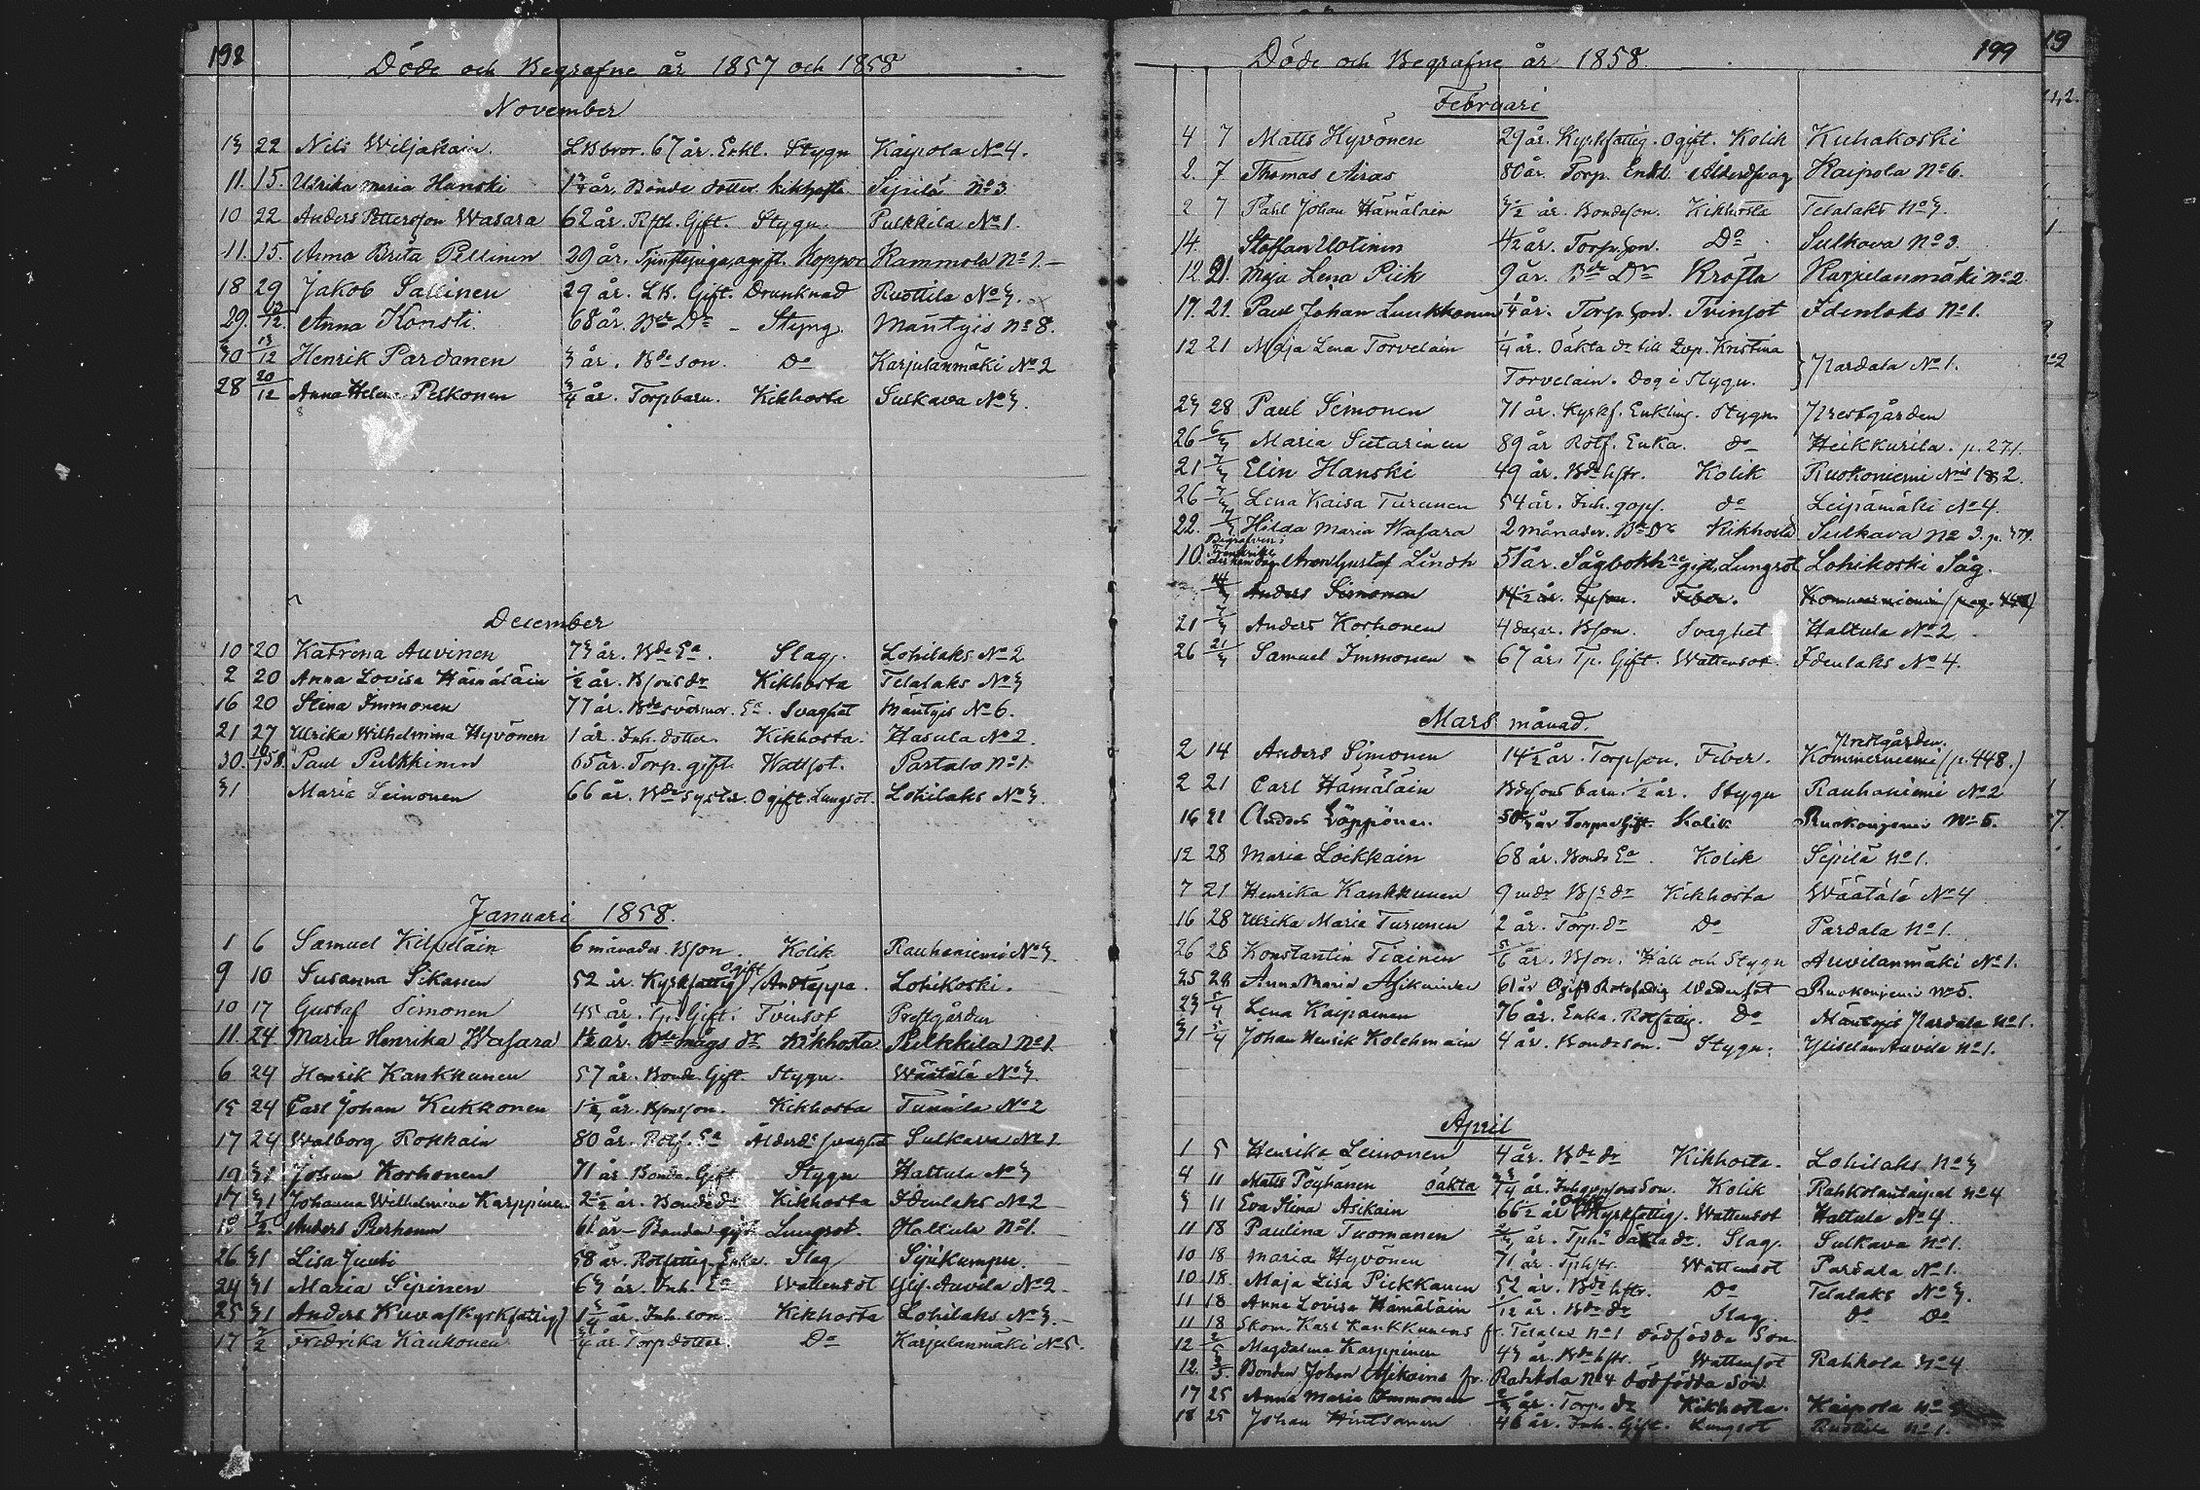 198
Döde och Begrafne år 1857 och 1858
November
15 22 Nils Wiljakain. 67 år. Enkl. Stygn Kaipola No 4.
11. 15. Ulrika Maria Hanski år. Bonde dotter. Kikhosta Sipilä No 3
10 22 Anders Pettersson Wasara 62 år. Gift. Stygn. Pulkkila No 1.
11. 15. Anna Brita Pellinen 29 år. ogift. Koppor Kammola No 1.
18 29 Jakob Sallinen 29 år. L.K. Gift. Drunknad Ruottila No 3.
29. 13/12. Anna Konsti. 68 år. Bde Dr - Styng. Mäntyis No 8.
30 13/12 Henrik Pardanen 3 år. Bde son. Do Karjulanmäki No 2
28 20/12 Anna Helena Pelkonen 3/4 år. Torpbarn. Kikhosta Sulkava No 3.
December
10 20 Katrina Auvinen 73 år. Bde Ea. Slag. Lohilaks No 2
2 20 Anna Lovisa Hämäläin 1/2 år. Bsons dr Kikhosta Telalaks No 3
16 20 Stina Immonen 77 år. Bde svärmor. Ea. Svaghet Mäntyis No 6.
21 27 Ulrika Wilhelmina Hyvönen 1 år. Inh. dotter. Kikhosta. Hasula No 2.
30. Paul Pulkkinen 65 år. Torp. gift. Wattsot. Partala No 1.
31 Maria Leinonen 66 år. Bde syster. Ogift. Lungsot. Lohilaks No 3.
Januari 1858.
1 6 Samuel Kilpeläin 6 månader. Bson. Kolik Rauhaniemi No 3
9 10 Susanna Sikanen 52 år. Kyrkfattig ogift / Andtäppa. Lohikoski.
10 17 Gustaf Simonen 45 år. Tp. Gift. Tvinsot Prestgården
11 24 Maria Henrika Wasara 1 1/2 år. Bde mågs dr. Kikhosta. Pulkkila No 1.
6 24 Henrik Kankkunen 57 år. Bonde. Gift. Stygn. Wäätälä No 3.
15 24 Carl Johan Kukkonen 1 1/2 år. Bonson. Kikhosta Tunnila No 2
17 24 Walborg Roskain 80 år. Rotf. Ea Ålderds svaghet Sulkava No 1
19 31 Johan Korhonen 71 år. Bonde. Gift Stygn Hattula No 3
17 31 Johanna Wilhelmina Karppinen 2 1/2 år. Bonde dr Kikhosta Idenlaks No 2
18 7/2. Anders Parhonen 61 år - Bonden gift Lungsot. Halttula No 1.
26 31 Lisa Juuti 58 år. Rotfattig Enka. Slag Sipikumpu.
24 31 Maria Sipinen 63 år. Inh. Ea Wattensot Ylis. Auvila No 2
25 31 Anders Kuvas (kyrkfattig) 1 3/4 år. Inh. son Kikhosta Lohilaks No 3.
17 7/2 Fredrika Kaukonen 3/4 år. Torp dotter. Do Karjulanmäki No 5.
199
Döde och Begrafne år 1858.
Februari
4 7 Matts Hyvönen 29 år. Kyrkfattig. Ogift. Kolik Kuhakoski
2. 7. Thomas Airas 80 år. Torp. Enkl. Ålderdsvag Kaipola No 6.
2 7 Pahl Johan Hämäläin 1/2 år. Bondeson. Kikhosta Telalaks No 3.
14. Staffan Uotinen 4 1/2 år. Torp. son. Do Sulkava No 3.
12 21. Maja Lena Piik 9 år. Bde Dr Kräfta Karjulanmäki No 2.
17. 21. Paul Johan Luukkonen 1/4 år. Torp. son. Tvinsot Idenlaks No 1.
12 21 Maja Lena Torvelain 1/4 år. Oäkta dr till Kristina
Torvelain. dog i Stygn. } Pardala No 1.
23 28 Paul Simonen 71 år. Kyrkf. Enkling. Stygn Prestgården
26 6/3 Maria Sutarinen 89 år Rotf. Enka. do Heikkurila. p. 271.
21 7/3 Elin Hanski 49 år. Bde hstr. Kolik Ruokoniemi Nris 1 & 2.
26 7/3 Lena Kaisa Turunen 54 år. Inh. do Leipämäki No 4.
22. 7/3 Hilda Maria Wasara 2 månader. Bde Dr Kikhosta Sulkava No 3. p. 479.
10. Begrafven i Fredrikshamn Aron Gustaf Lindh 51 år. Sågbokh. gift, Lungsot. Lohikoski Såg.
14/3 Anders Simonen 14 1/2 år. Tpson. Feber. Kommerniemi (pag. 448)
21 7/3 Anders Korhonen 4 dagar. Bson. Svaghet Haltula No 2
26 21/3 Samuel Immonen 67 år. Tp. Gift. Wattensot. Idenlaks No 4.
Mars månad.
2 14 Anders Simonen 14 1/2 år. Torpson. Feber. Prestgården. Kommerniemi (p. 448.)
2 21 Carl Hämäläin Bdesons barn. 1/2 år. Stygn Rauhaniemi No 2
16 21 Anders Löppönen. Torpare Gift. Kolik Ruokoniemi No 5.
12 28 Maria Loikkain 68 år. Bonde Ea. Kolik Sipilä No 1.
7 21 Henrika Kankkunen 9 mdr Bs dr Kikhosta Wäätälä No 4
16 28 Ulrika Maria Turunen 2 år. Torp. dr Do Pardala No 1.
26 28 Konstantin Tiainen 5/6 år. Bson. Håll och Stygn Auvilanmäki No 1.
25 28 Anna Maria Asikainen 61 år Ogift Rotefattig Wattensot Ruokoniemi No 5.
23 5/4 Lena Kaipainen 76 år. Enka. Rotfattig. Do Mäntyis Pardala No 1.
31 5/4 Johan Henrik Kolehmain 4 år. Bondeson. Stygn. Ylisen Auvila No 1.
April
1 5 Henrika Leinonen 4 år. Bde dr Kikhosta. Lohilaks No 3
4 11 Matts Pöyhänen oäkta 3/4 år. son. Kolik Rahkolantaipal No 4
3 11 Eva Stina Asikain 66 1/2 år Kyrkfattig. Wattensot Hattula No 4.
11 18 Paulina Tuomanen år. oäkta dr. Slag. Sulkava No 1.
10 18 Maria Hyvönen 71 år. Tphstr. Wattensot Pardala No 1.
10 18. Maja Lisa Pickkanen 52 år. Bde hstr. Do Telalaks No 3.
11 18 Anna Lovisa Hämäläin 1/12 år. Bde dr Slag. do do
11 18 Skom. Karl Kankkunens fr. Telalax No 1 dödfödda son
12 2/5 Magdalena Karppinen 43 år. Bde hstr. Wattensot Rahkola No 4
12. 2/5. Bonden Johan Asikains fr. Rahkola No 4 dödfödda son
17 25 Anna Maria Immonen år. Torp. dr Kikhosta. Kaipola No
18 25 Johan Hintsanen 46 år. Inh. Gift. Lungsot Ruottila No 1.
19